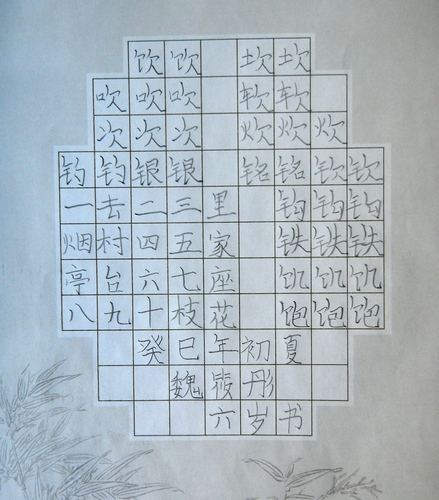 饮饮 坎坎
吹吹吹 软软
次次次 炊炊炊
钓钓银银 铭铭钦钦
一去二三里 钩钩钩
烟村四五家 铁铁铁
亭台六七座 饥饥饥
八九十枝花 饱饱饱
癸巳年初夏
魏 彤
六岁书